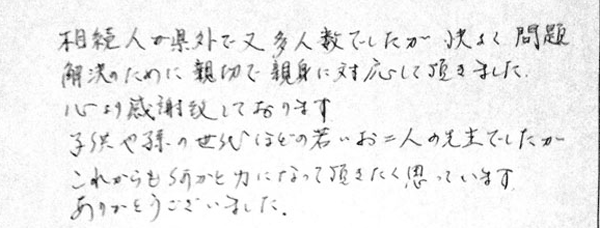 相続人が県外で又多人数でしたが 快よく 問題
解決のために 親切で 親身に対応して頂きました.
心より感謝致しております
子供や孫の世代ほどの若いお二人の先生でしたが
これからも何かと力になって頂きたく思っています
ありがとうございました.